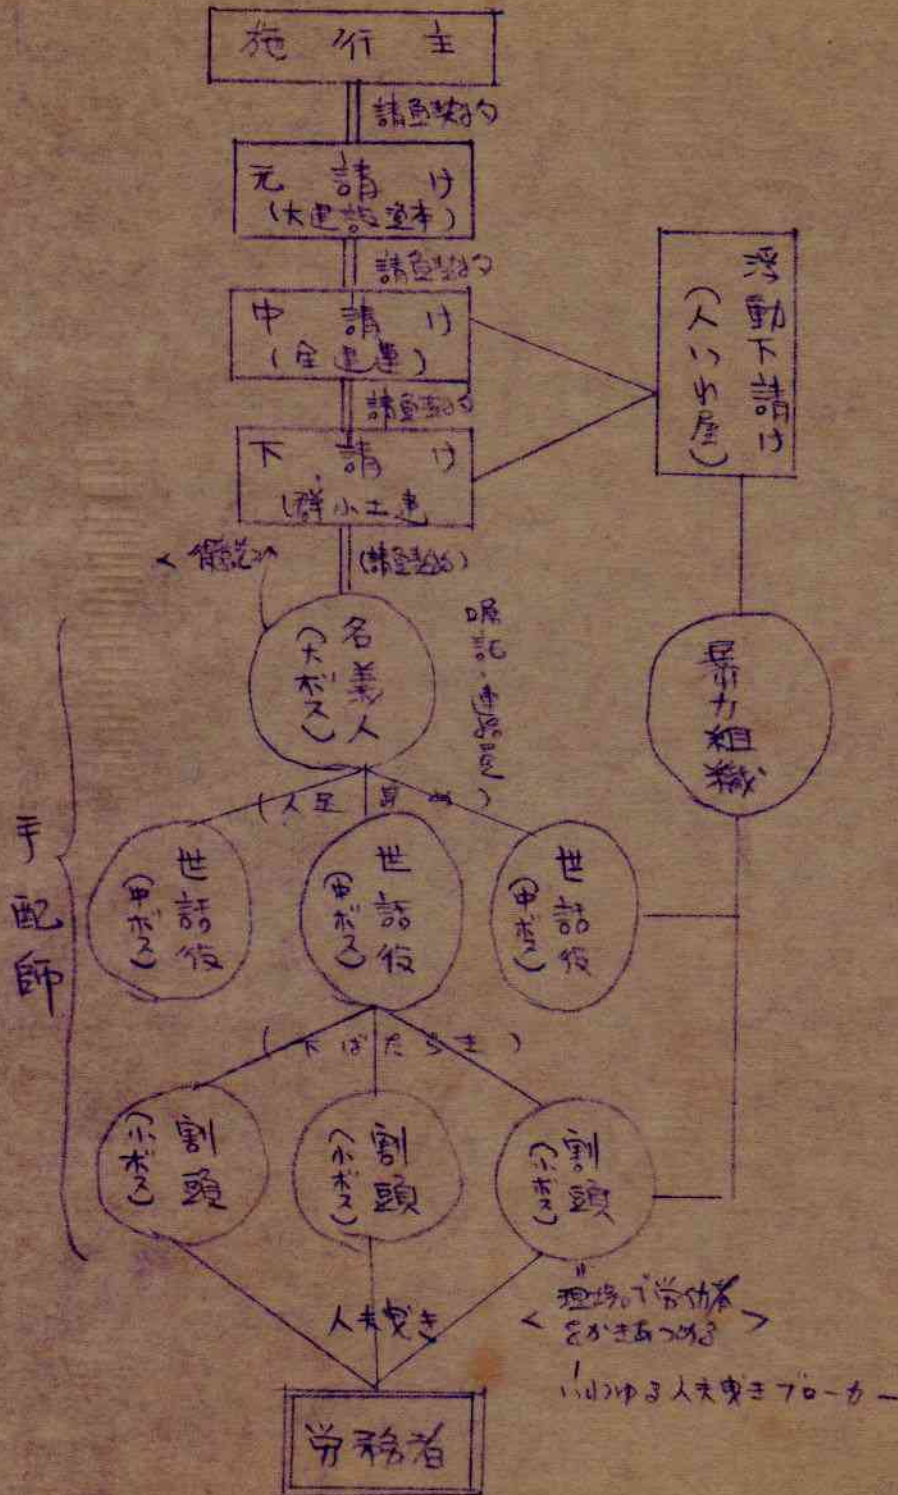 施行主
請負契約
元請け
(大建設資本)
請負契約
中請け
(全建連)
請負契約
下請け
(群小土建
(請負契約)
浮動下請け
(人いれ屋)
名義人
(大ボス)
嘱託・連絡員
暴力組織
(人足集め)
世話役
(中ボス)
世話役
(中ボス)
世話役
(中ボス)
手配師
(下ばたらき)
割頭
(小ボス)
割頭
(小ボス)
割頭
(小ボス)
人夫曳き
<現場で労仂者
をかきあつめる>
いわゆる人夫曳きブローカー
労務者